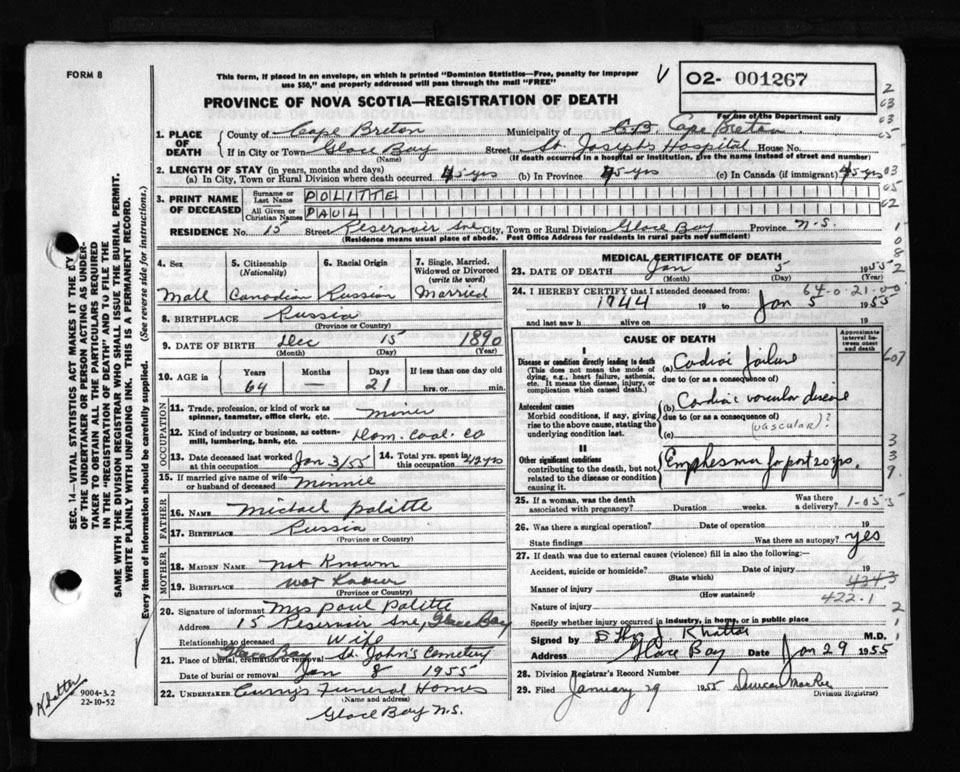 FORM 8
This form, if placed in an envelope, on which is printed "Dominion Statistics—Free, penalty for improper
use $50," and properly addressed will pass through the mail "FREE"
PROVINCE OF NOVA SCOTIA—REGISTRATION OF DEATH
V
02- 001267
For use of the Department only
2
03
03
05
03
05
02
1
0
8
2
1. PLACE OF DEATH
County of Cape Breton Municipality of C.B. Cape Breton
If in City or Town Glace Bay Street St. Josephs Hospital House No.
(Name) (If death occurred in a hospital or institution, give the name instead of street and number)
2. LENGTH OF STAY (in years, months and days)
(a) In City, Town or Rural Division where death occurred 45 yrs (b) In Province 45 yrs (c) In Canada (if immigrant) 45 yrs
3. PRINT NAME OF DECEASED
Surname or Last Name POLITTE
All Given or Christian Names PAUL
RESIDENCE No. 15 Street Reservoir Ave City, Town or Rural Division Glace Bay Province N.S.
(Residence means usual place of abode. Post Office Address for residents in rural parts not sufficient)
4. Sex Mall
5. Citizenship (Nationality) Canadian
6. Racial Origin Russian
7. Single, Married, Widowed or Divorced (write the word) Married
8. BIRTHPLACE Russia
(Province or Country)
9. DATE OF BIRTH Dec 15 1890
(Month) (Day) (Year)
10. AGE in Years Months Days If less than one day old
64 — 21 hrs. or min.
OCCUPATION
11. Trade, profession, or kind of work as spinner, teamster, office clerk, etc. Miner
12. Kind of industry or business, as cotton-mill, lumbering, bank, etc. Dom. Coal. Co
13. Date deceased last worked at this occupation Jan 3/55
14. Total yrs. spent in this occupation 42 yrs
15. If married give name of wife or husband of deceased Minnie
FATHER
16. NAME Michael Palitte
17. BIRTHPLACE Russia
(Province or Country)
MOTHER
18. MAIDEN NAME Not Known
19. BIRTHPLACE Not Known
(Province or Country)
20. Signature of informant Mrs Paul Palitte
Address 15 Reservoir Ave, Glace Bay
Relationship to deceased Wife
21. Place of burial, cremation or removal Glace Bay St. John's Cemetery
Date of burial or removal Jan 8 1955
22. UNDERTAKER Curry's Funeral Homes
(Name and address)
Glace Bay N.S.
MEDICAL CERTIFICATE OF DEATH
23. DATE OF DEATH Jan 5 1955
(Month) (Day)
64-0-21-00
24. I HEREBY CERTIFY that I attended deceased from:
1944 19 to Jan 5 1955
and last saw h alive on 19
CAUSE OF DEATH
Approximate interval between onset and death
607
I
Disease or condition directly leading to death
(This does not mean the mode of dying, e.g., heart failure, asthenia, etc. It means the disease, injury, or complication which caused death.)
(a) Cardiac failure
due to (or as a consequence of)
Antecedent causes
Morbid conditions, if any, giving rise to the above cause, stating the underlying condition last.
(b) Cardiac vascular disease
due to (or as a consequence of)
(vascular)?
(c)
II
Other significant conditions
contributing to the death, but not related to the disease or condition causing it.
Emphesma for past 20 yrs.
3
3
9
25. If a woman, was the death associated with pregnancy? Duration weeks. Was there a delivery?
1-05 5
26. Was there a surgical operation? Date of operation 19
State findings Was there an autopsy? yes
27. If death was due to external causes (violence) fill in also the following:—
Accident, suicide or homicide? Date of injury 19
(State which)
Manner of injury 434.3
(How sustained)
Nature of injury 422.1
2
1
1
Specify whether injury occurred in industry, in home, or in public place
Signed by Khattar M.D.
Address Glace Bay Date Jan 29 1955
28. Division Registrar's Record Number
29. Filed January 29 1955 Duncan MacRae
Division Registrar
SEC. 14—VITAL STATISTICS ACT MAKES IT THE DUTY
OF THE UNDERTAKER OR PERSON ACTING AS UNDER-
TAKER TO OBTAIN ALL THE PARTICULARS REQUIRED
IN THE "REGISTRATION OF DEATH" AND TO FILE THE
SAME WITH THE DIVISION REGISTRAR WHO SHALL ISSUE THE BURIAL PERMIT.
WRITE PLAINLY WITH UNFADING INK. THIS IS A PERMANENT RECORD.
Every item of information should be carefully supplied. (See reverse side for instructions.)
Khattar
9004-3.2
22-10-52